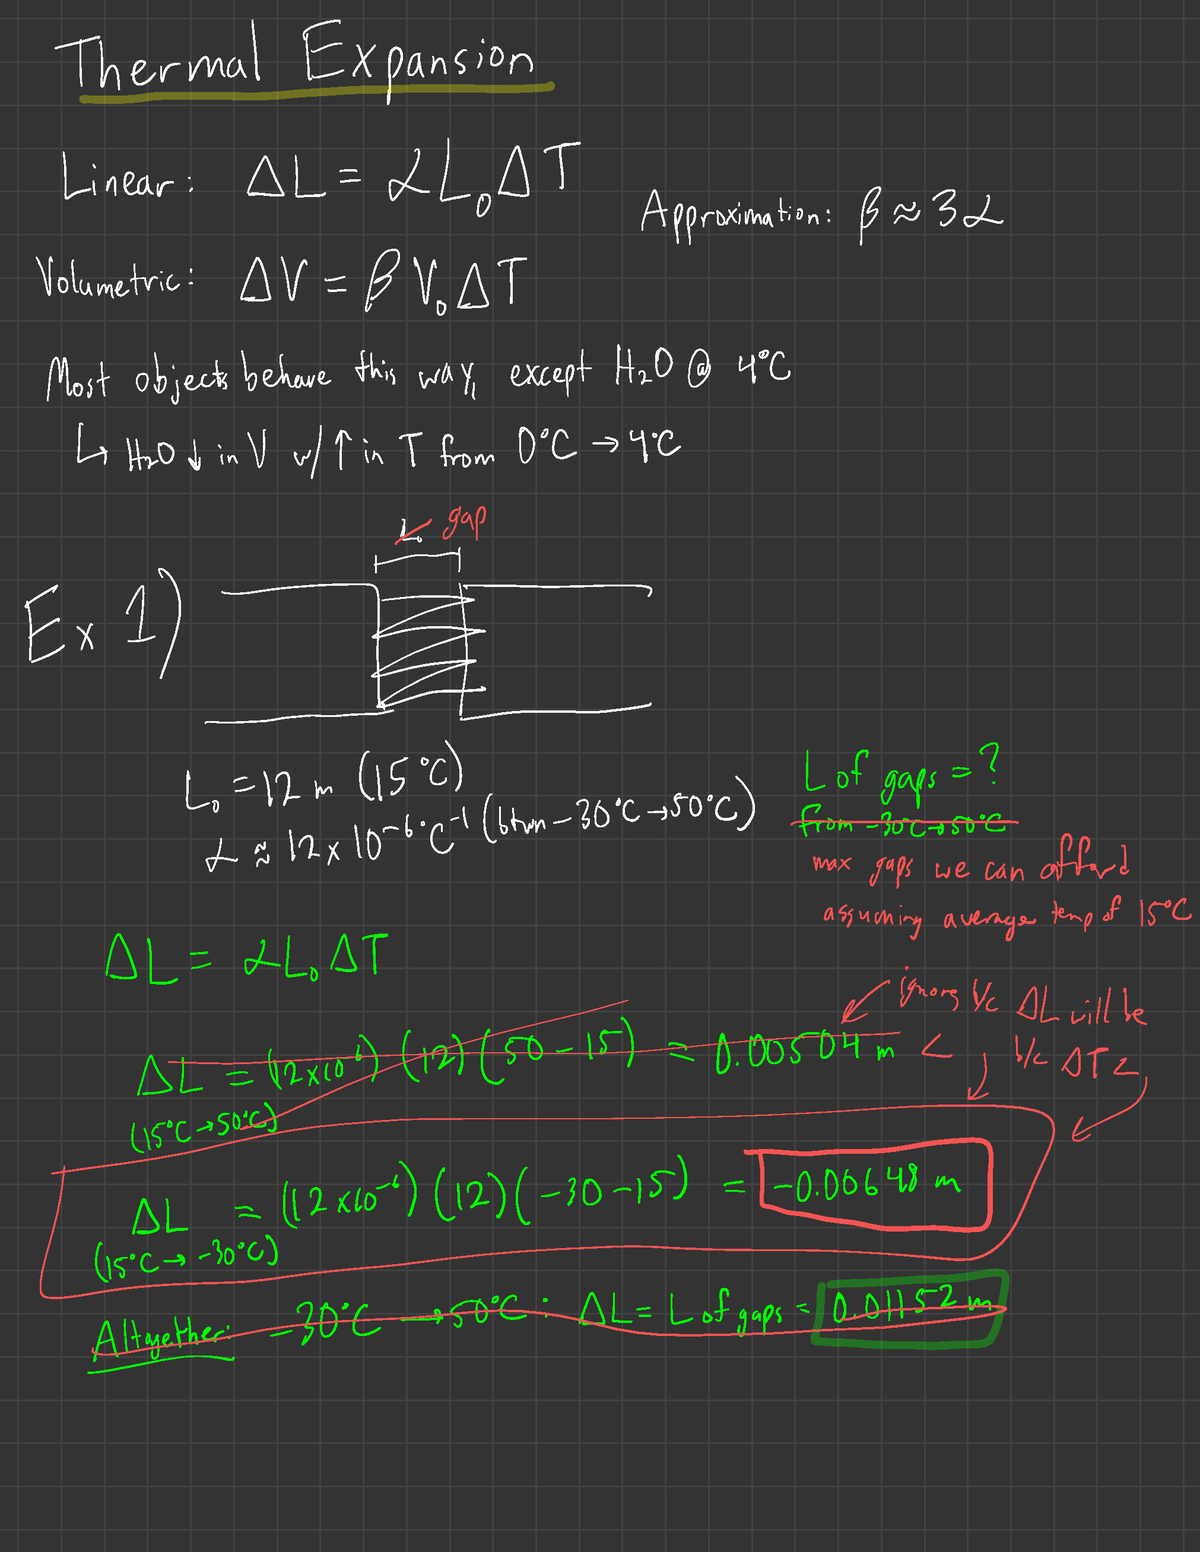 Thermal Expansion
Linear: ΔL = αL₀ΔT
Approximation: β ≈ 3α
Volumetric: ΔV = βV₀ΔT
Most objects behave this way, except H₂O @ 4°C
↳ H₂O ↓ in V w/ ↑ in T from 0°C → 4°C
L₀ gap
Ex 1)
L₀ = 12 m (15°C)
α ≈ 12 x 10⁻⁶ °C⁻¹ (btwn -30°C → 50°C)
L of gaps = ?
from -30°C → 50°C
max gaps we can afford
assuming average temp of 15°C
ΔL = αL₀ΔT
ignore b/c ΔL will be
< b/c ΔT <
ΔL = (12x10⁻⁶) (12) (50 - 15) = 0.00504 m
(15°C → 50°C)
ΔL = (12 x10⁻⁶) (12) (-30 -15) = -0.00648 m
(15°C → -30°C)
Altogether: -30°C → 50°C : ΔL = L of gaps = 0.01152 m